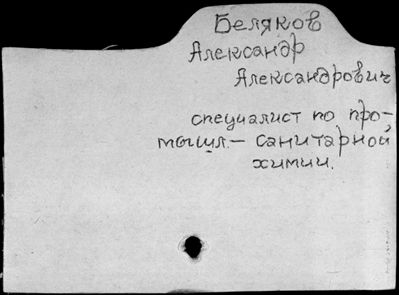 Беляков
Александр
Александрович
специалист по про-
мышл.- санитарной
химии.